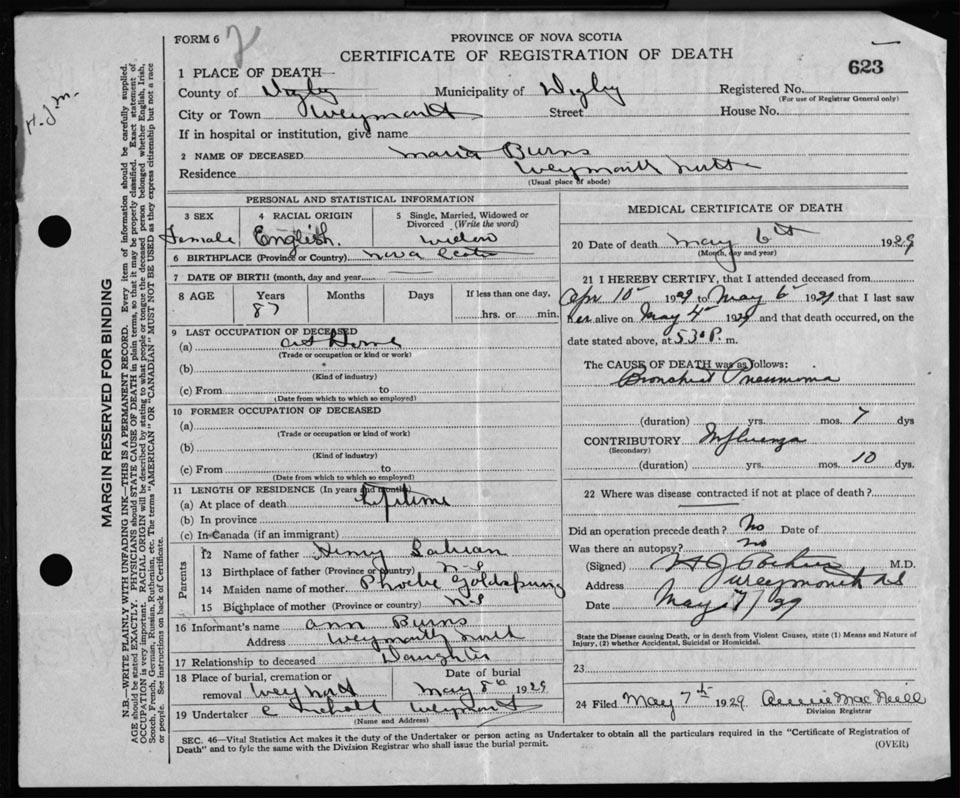 FORM 6
PROVINCE OF NOVA SCOTIA
CERTIFICATE OF REGISTRATION OF DEATH
623
H.J.M.
MARGIN RESERVED FOR BINDING
N.B.—WRITE PLAINLY WITH UNFADING INK—THIS IS A PERMANENT RECORD. Every item of information should be carefully supplied.
AGE should be stated EXACTLY. PHYSICIANS should STATE CAUSE OF DEATH in plain terms, so that it may be properly classified. Exact statement of
OCCUPATION is very important. RACIAL ORIGIN will be described by stating to what people or tongue the deceased person belonged whether English, Irish,
Scotch, French, German, Russian, Ruthenian, etc. The terms "AMERICAN" OR "CANADIAN" MUST NOT BE USED as they express citizenship but not a race
or people. See instructions on back of Certificate.
1 PLACE OF DEATH—
County of Digby Municipality of Digby Registered No.
(For use of Registrar General only)
City or Town Weymouth Street House No.
If in hospital or institution, give name
2 NAME OF DECEASED Maria Burns
Residence Weymouth North
(Usual place of abode)
PERSONAL AND STATISTICAL INFORMATION
3 SEX 4 RACIAL ORIGIN 5 Single, Married, Widowed or Divorced (Write the word)
Female English. widow
6 BIRTHPLACE (Province or Country) Nova Scotia
7 DATE OF BIRTH (month, day and year)
8 AGE Years Months Days If less than one day,
87 hrs. or min.
9 LAST OCCUPATION OF DECEASED
(a) at Home
(Trade or occupation or kind or work)
(b)
(Kind of industry)
(c) From to
(Date from which to which so employed)
10 FORMER OCCUPATION OF DECEASED
(a)
(Trade or occupation or kind of work)
(b)
(Kind of industry)
(c) From to
(Date from which to which so employed)
11 LENGTH OF RESIDENCE (In years and months)
(a) At place of death Lifetime
(b) In province
(c) In Canada (if an immigrant)
Parents
12 Name of father Henry
13 Birthplace of father (Province or country) N.S
14 Maiden name of mother Phoebe Goldspring
15 Birthplace of mother (Province or country) N.S
16 Informant's name Ann Burns
Address Weymouth North
17 Relationship to deceased Daughter
18 Place of burial, cremation or Date of burial
removal Weymouth May 8th 1929
19 Undertaker Weymouth
(Name and Address)
MEDICAL CERTIFICATE OF DEATH
20 Date of death May 6th 1929
(Month, day and year)
21 I HEREBY CERTIFY, that I attended deceased from
Apr 10th 1929 to May 6th 1929 that I last saw
her alive on May 4th 1929 and that death occurred, on the
date stated above, at 530 P. m.
The CAUSE OF DEATH was as follows:
Bronchial Pneumonia
(duration) yrs. mos. 7 dys
CONTRIBUTORY Influenza
(Secondary)
(duration) yrs. mos. 10 dys.
22 Where was disease contracted if not at place of death?
Did an operation precede death? No Date of
Was there an autopsy? no
(Signed) H J M.D.
Address Weymouth N S
Date May 7/29
State the Disease causing Death, or in death from Violent Causes, state (1) Means and Nature of
Injury, (2) whether Accidental, Suicidal or Homicidal.
23
24 Filed May 7th 1929. Annie MacNeill
Division Registrar
SEC. 46—Vital Statistics Act makes it the duty of the Undertaker or person acting as Undertaker to obtain all the particulars required in the "Certificate of Registration of
Death" and to fyle the same with the Division Registrar who shall issue the burial permit. (OVER)